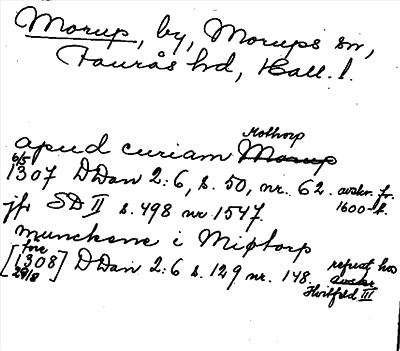 Morup, by, Morups sn,
Faurås hd, Hall. l.
apud curiam Mothorp
6/5
1307 DDan 2:6, s. 50, nr. 62. avskr. fr.
1600-t.
jfr SD II s. 498 nr 1547.
munchene i Miptorp
[före 1308] DDan 2:6 s. 129 nr. 148. referat hos
29/8
Hvitfeld III